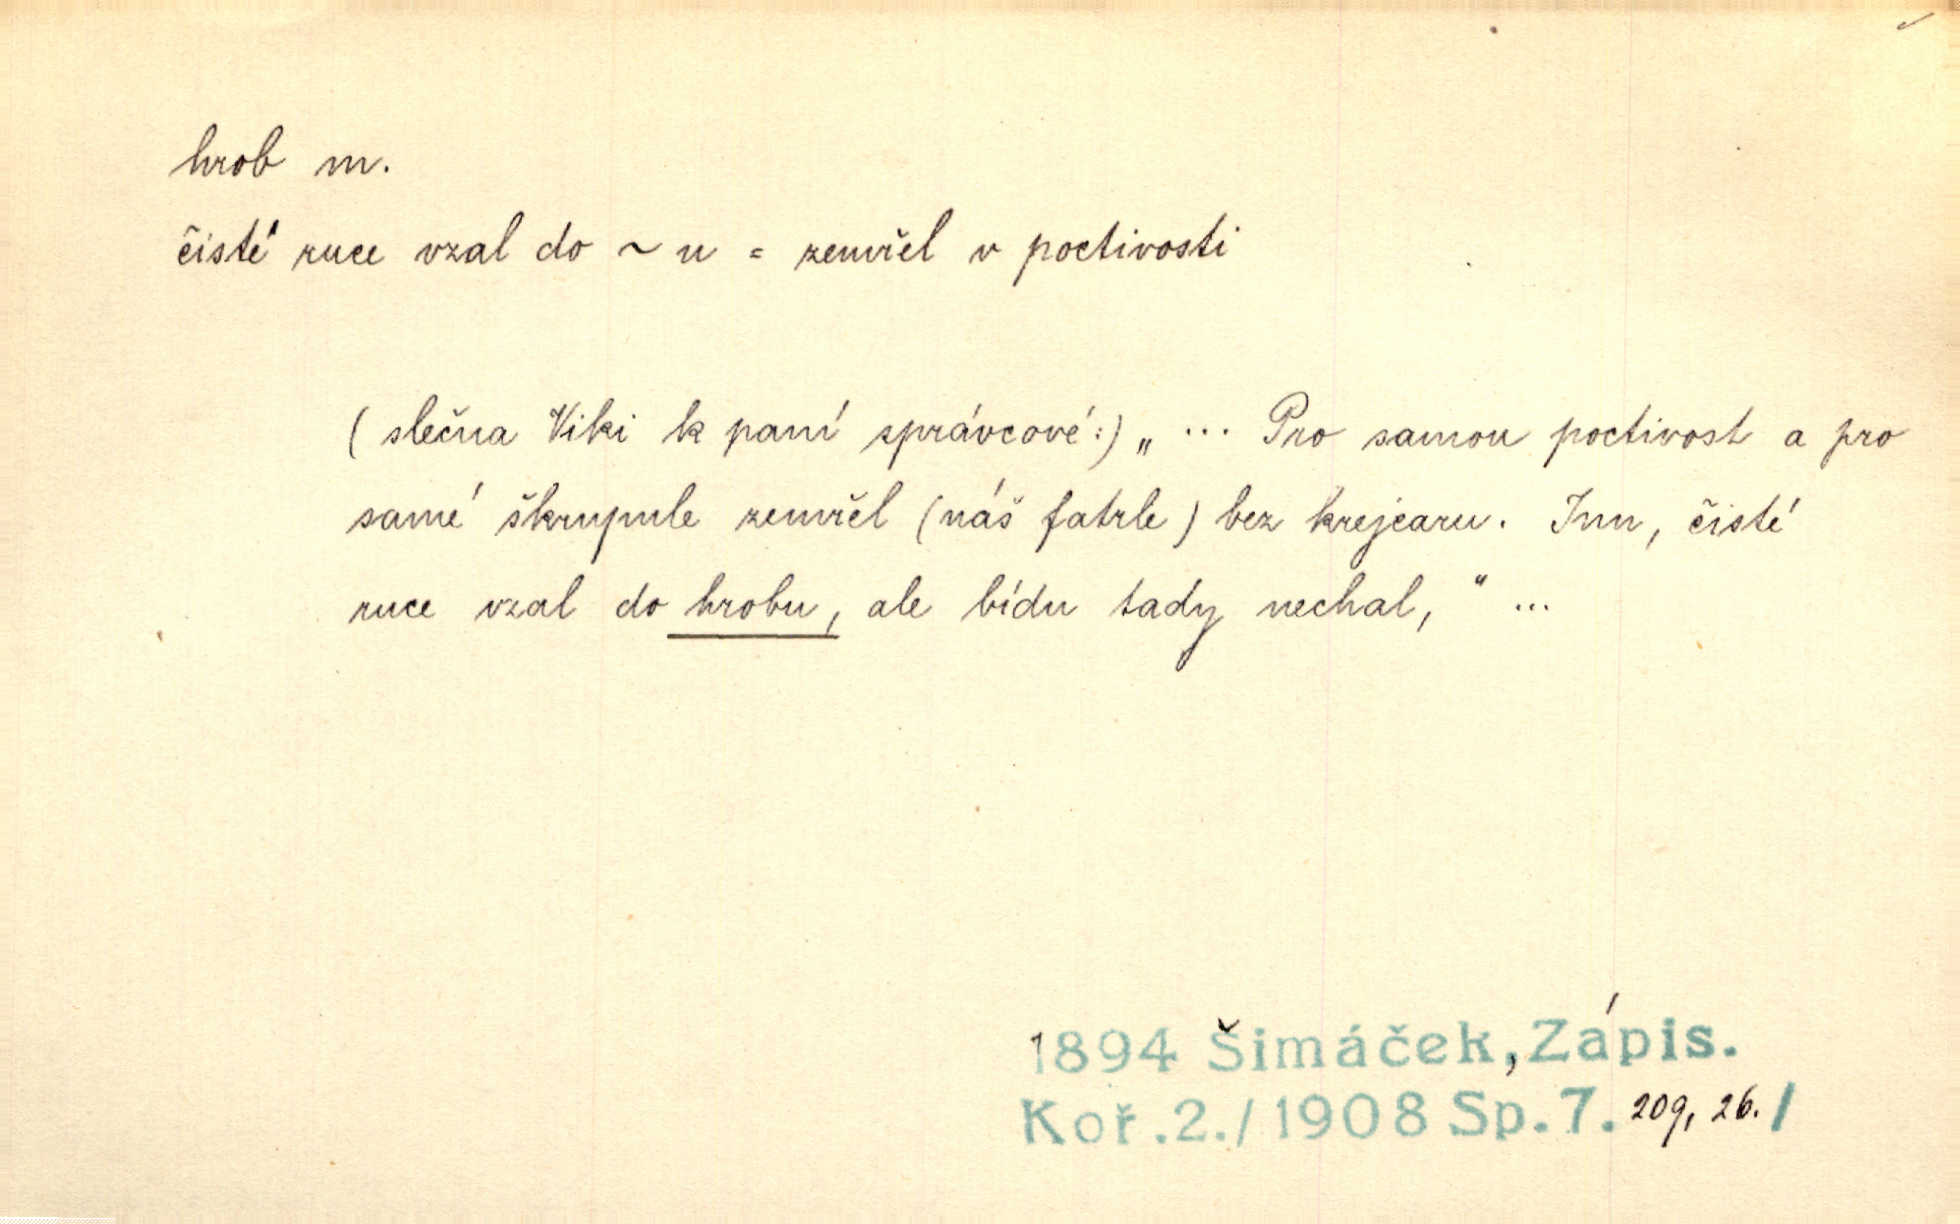 hrob m.
čisté ruce vzal do ~ u = zemřel v poctivosti
(slečna Viki k paní správcové:) „ ... Pro samou poctivost a pro
samé škrupule zemřel (náš fatrle) bez krejcaru. Inu, čisté
ruce vzal do hrobu, ale bídu tady nechal, “ ...
1894 Šimáček, Zápis.
Koř. 2. / 1908 Sp. 7. 209, 26. /